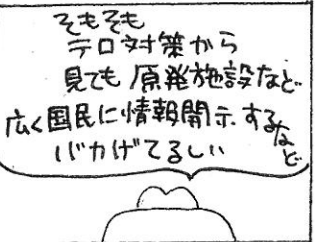 そもそも
テロ対策から
見ても原発施設など
広く国民に情報開示するなど
バカげてるしい